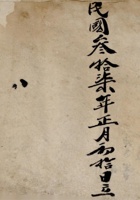 民國叁拾柒年正月初拾日立
八